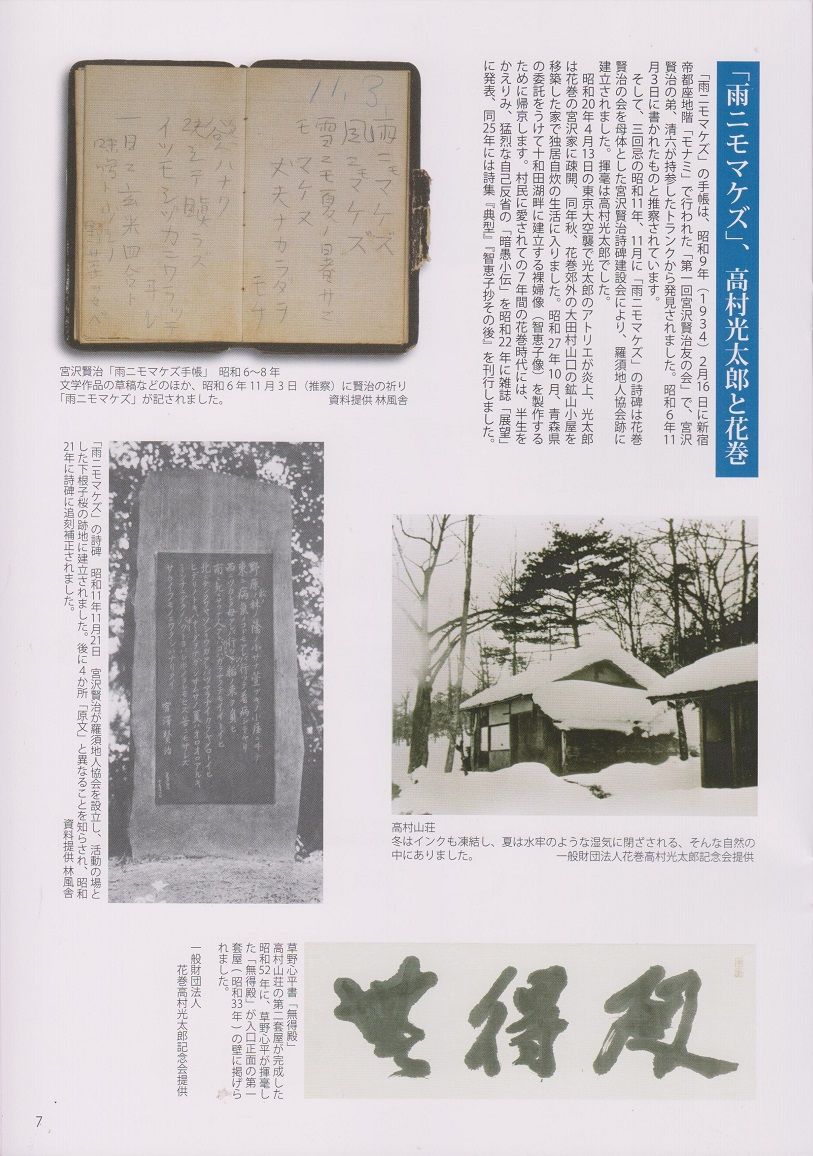 「雨ニモマケズ」、高村光太郎と花巻
「雨ニモマケズ」の手帳は、昭和9年（1934）2月16日に新宿
帝都座地階「モナミ」で行われた「第一回宮沢賢治友の会」で、宮沢
賢治の弟、清六が持参したトランクから発見されました。昭和6年11
月3日に書かれたものと推察されています。
そして、三回忌の昭和11年、11月に「雨ニモマケズ」の詩碑は花巻
賢治の会を母体とした宮沢賢治詩碑建設会により、羅須地人協会跡に
建立されました。揮毫は高村光太郎でした。
昭和20年4月13日の東京大空襲で光太郎のアトリエが炎上、光太郎
は花巻の宮沢家に疎開、同年秋、花巻郊外の大田村山口の鉱山小屋を
移築した家で独居自炊の生活に入りました。昭和27年10月、青森県
の委託をうけて十和田湖畔に建立する裸婦像（智恵子像）を製作する
ために帰京します。村民に愛されての7年間の花巻時代には、半生を
かえりみ、猛烈な自己反省の「暗愚小伝」を昭和22年に雑誌「展望」
に発表、同25年には詩集『典型』『智恵子抄その後』を刊行しました。
11.3.
雨ニモマケズ
風ニモマケズ
雪ニモ夏ノ暑サニ
モマケヌ
丈夫ナカラダヲ
モチ
慾ハナク
決シテ瞋ラズ
イツモシヅカニワラッテ
ヰル
一日ニ玄米四合ト
味噌ト少シノ
野菜ヲタベ
宮沢賢治「雨ニモマケズ手帳」 昭和6〜8年
文学作品の草稿などのほか、昭和6年11月3日（推察）に賢治の祈り
「雨ニモマケズ」が記されました。 資料提供 林風舎
野原ノ松ノ林ノ陰ノ小サナ萱ブキノ小屋ニヰテ
東ニ病気ノコドモアレバ行ッテ看病シテヤリ
西ニツカレタ母アレバ行ッテソノ稲ノ束ヲ負ヒ
南ニ死ニサウナ人アレバ行ッテコハガラナクテモイヽトイヒ
北ニケンクヮヤソショウガアレバツマラナイカラヤメロトイヒ
宮澤賢治
「雨ニモマケズ」の詩碑 昭和11年11月21日 宮沢賢治が羅須地人協会を設立し、活動の場と
した下根子桜の跡地に建立されました。後に4か所「原文」と異なることを知らされ、昭和
21年に詩碑に追刻補正されました。 資料提供 林風舎
高村山荘
冬はインクも凍結し、夏は水牢のような湿気に閉ざされる、そんな自然の
中にありました。 一般財団法人花巻高村光太郎記念会提供
無得殿
草野心平書「無得殿」
高村山荘の第二套屋が完成した
昭和52年に、草野心平が揮毫し
た「無得殿」が入口正面の第一
套屋（昭和33年）の壁に掲げら
れました。
一般財団法人
花巻高村光太郎記念会提供
7